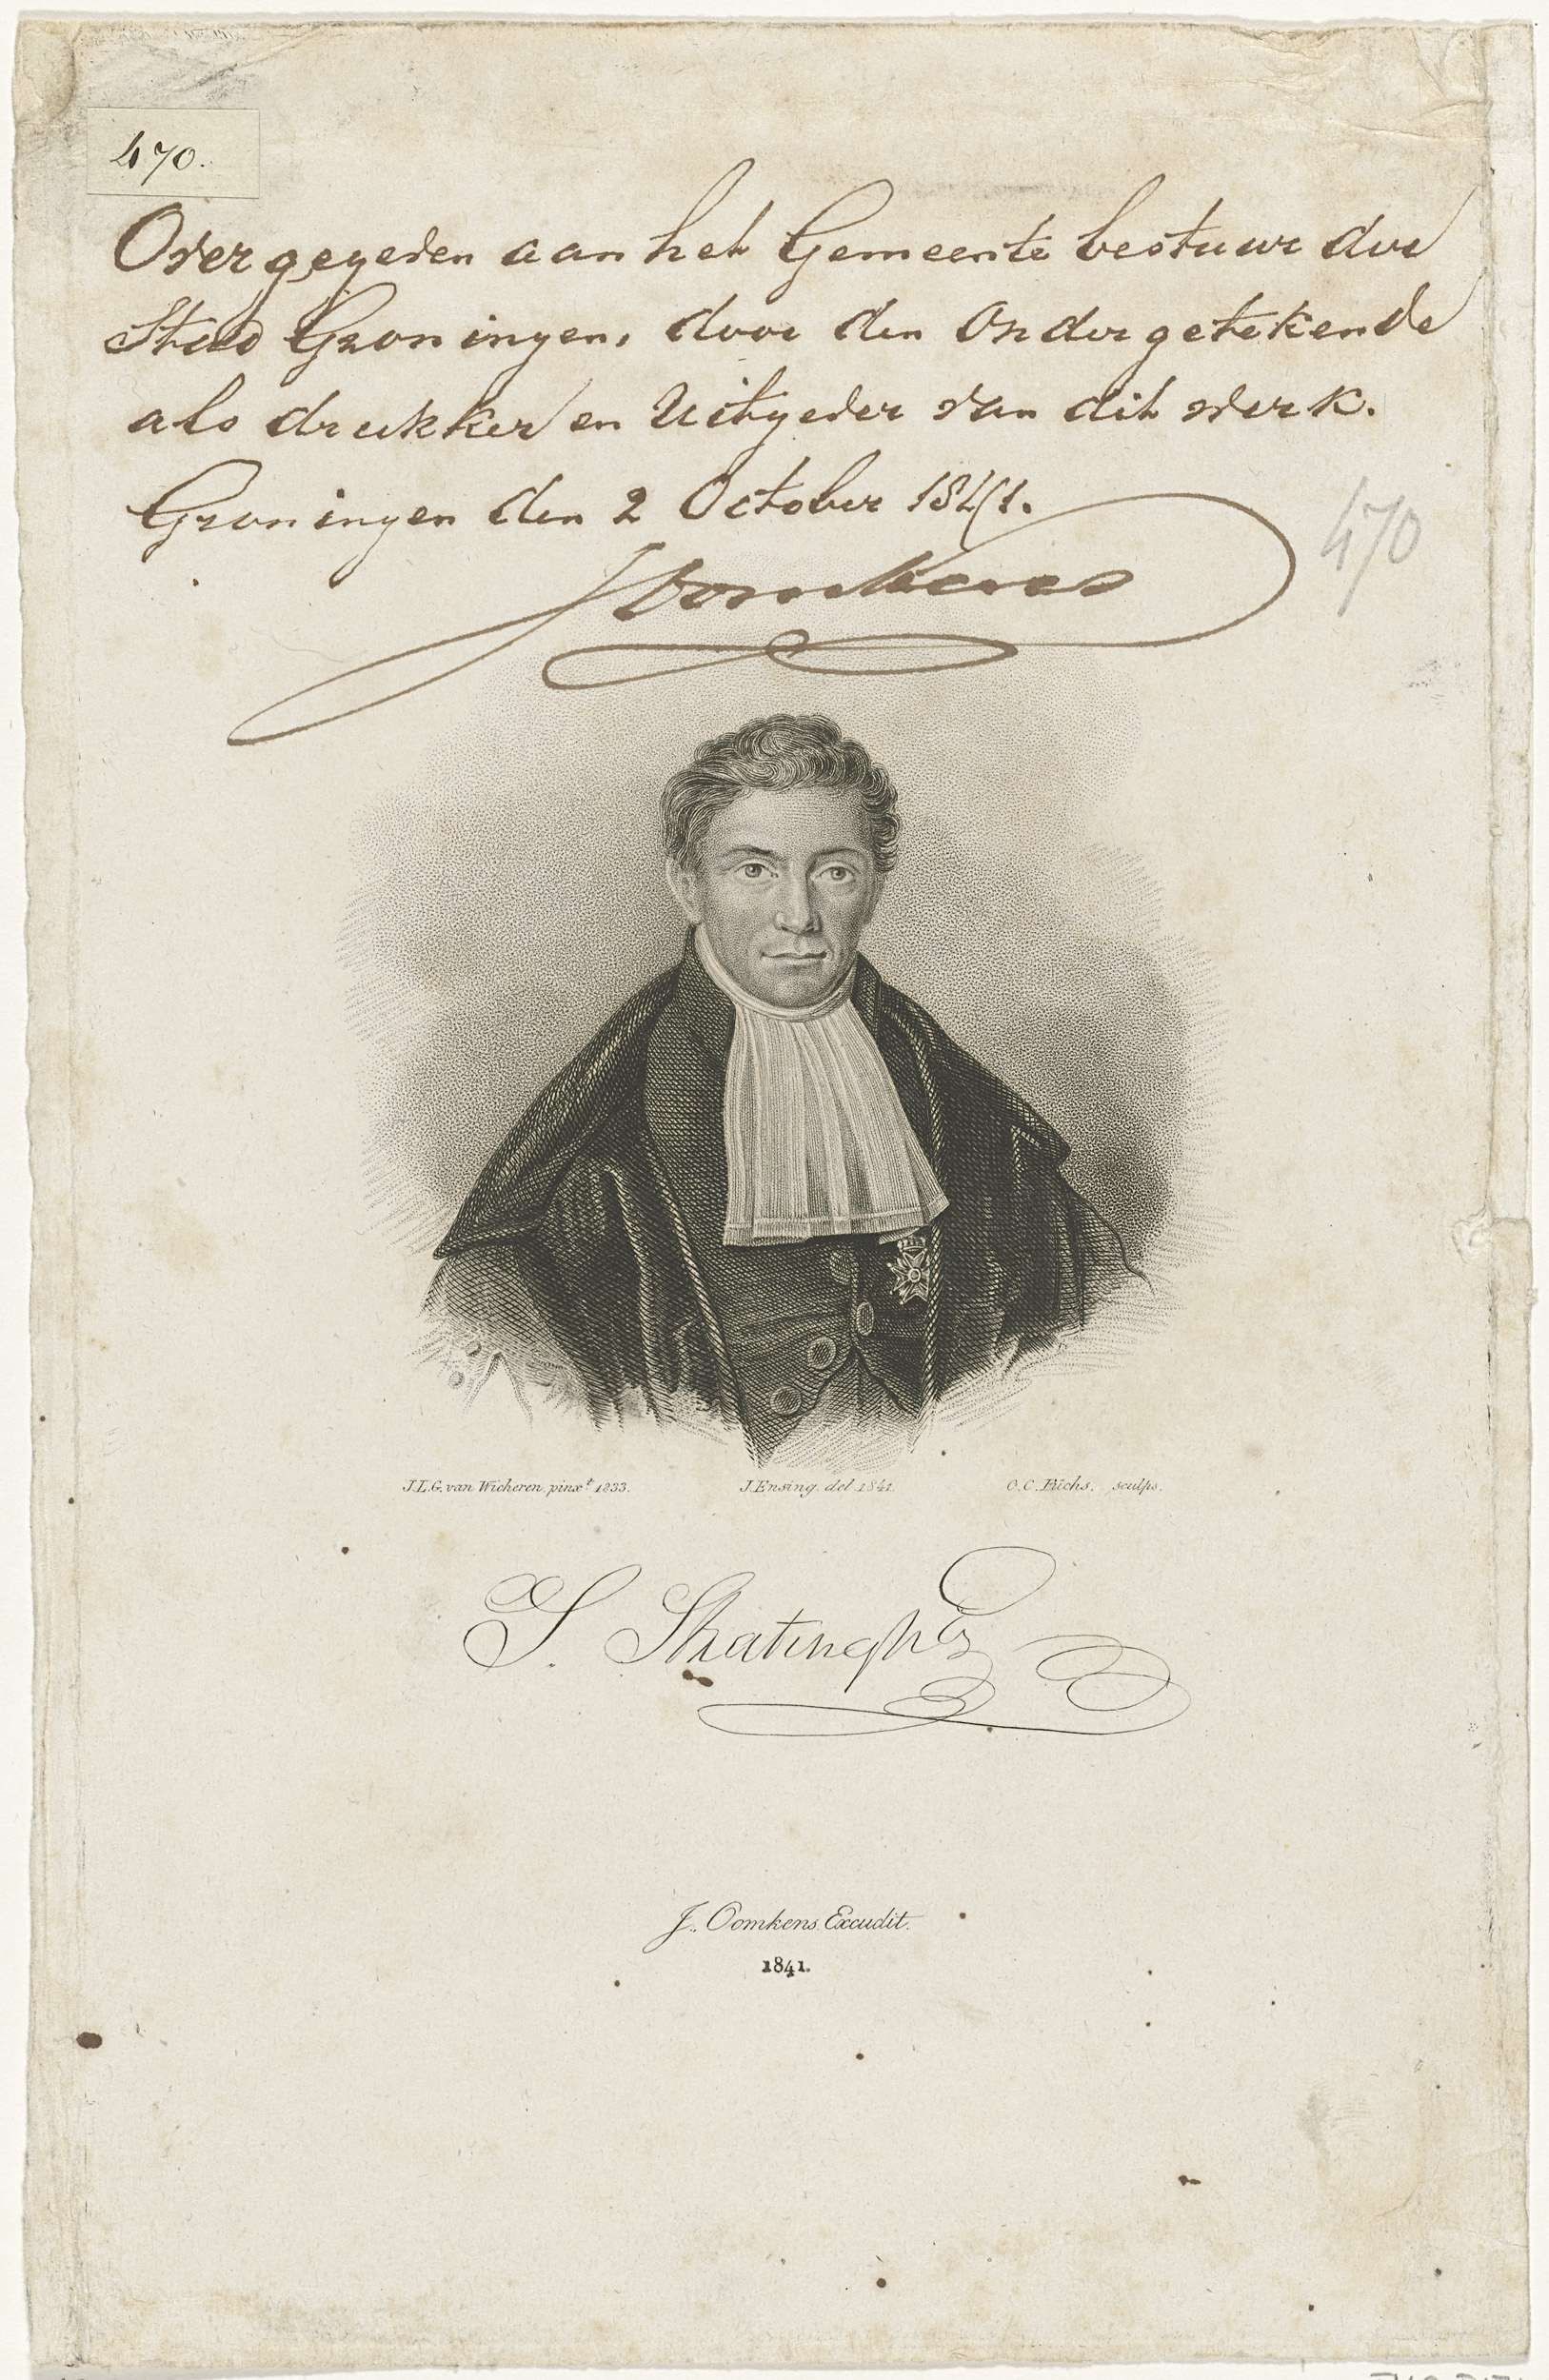 470.
Overgegeven aan het Gemeente bestuur der
Stad Groningen, door den Ondergetekende
als drukker en Uitgever van dit werk.
Groningen den 2 October 1841.
470
J Oomkens
J.L.G. van Wicheren pinxt 1833.
J. Ensing. del 1841.
O.C. Füchs. sculps.
S. Stratingh Ez
J. Oomkens Excudit.
1841.